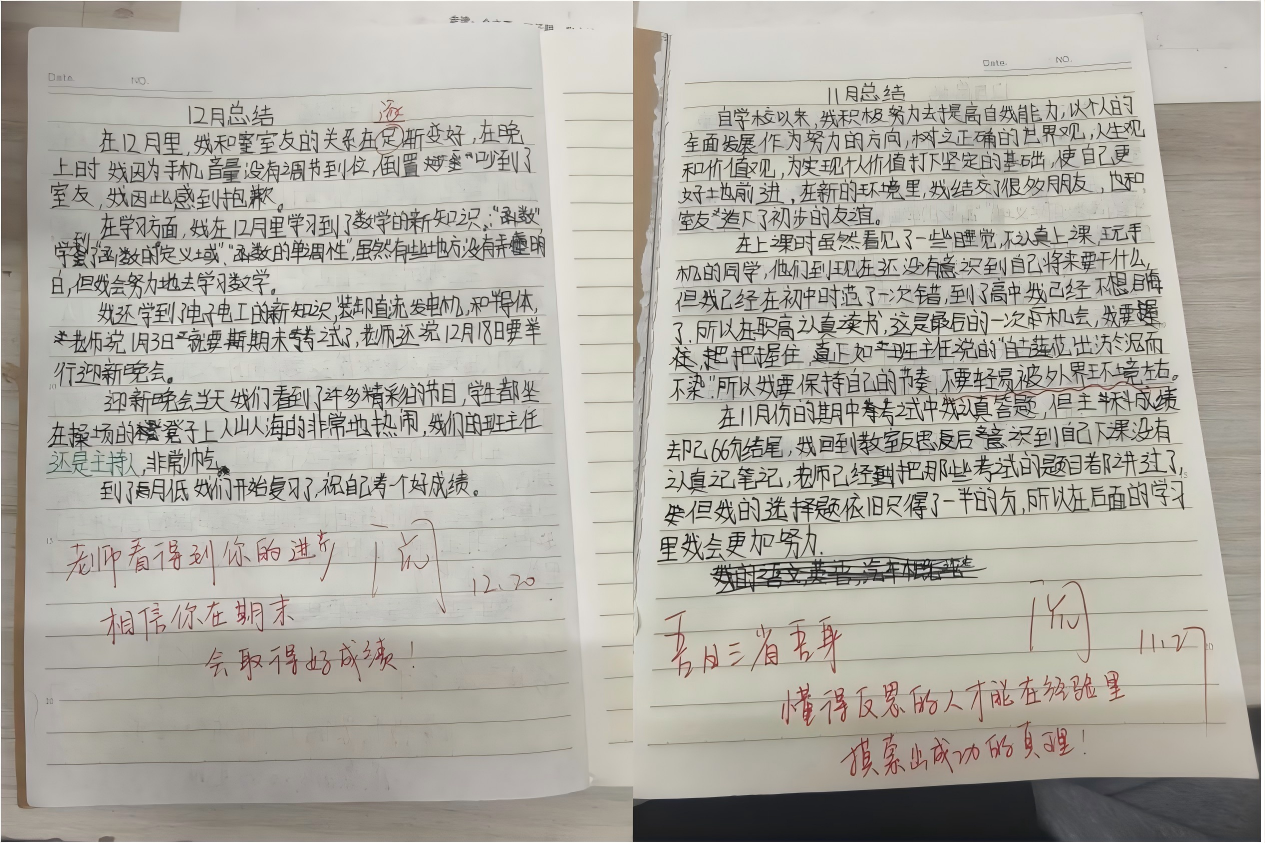 Date.
NO.
12月总结
逐
在12月里，我和室室友的关系在足渐变好，在晚
上时我因为手机音量没有调节到位，倒置 吵到了
室友，我因此感到抱歉。
在学习方面，我在12月里学习到了数学的新知识，"函数"
学到了"函数的定义域""函数的单调性"虽然有些地方没有弄懂明
白，但我会努力地去学习数学。
我还学到了电子电工的新知识，装卸直流发电机，和半导体，
老师说1月3日就要期末考试了，老师还说12月18日要举
行迎新晚会。
迎新晚会当天我们看到了许多精彩的节目，学生都坐
在操场的凳子上人山人海的非常地热闹，我们的班主任
还是主持人，非常帅气
到了月低我们开始复习了，祝自己考个好成绩。
老师看得到你的进步
阅
12.20
相信你在期末
会取得好成绩！
Date.
NO.
11月总结
自学校以来，我积极努力去提高自我能力，以个人的
全面发展作为努力的方向，树立正确的世界观，人生观
和价值观，为实现个人价值打下坚定的基础，使自己更
好地前进，在新的环境里，我结交了很多朋友，也和
室友造下了初步的友谊。
在上课时虽然看见了一些睡觉，不认真上课，玩手
机的同学，他们到现在还没有意识到自己将来要干什么，
但我已经在初中时范了一次错，到了高中我已经不想自悔
了，所以在职高认真读书，这是最后的一次机会，我要
把把握住，真正如班主任说的"白莲花出淤泥而
不染"所以我要保持自己的节奏，不要轻易被外界环境左右。
在11月份的期中考试中我认真答题，但主科成绩
却已66分结尾，我回到教室反思反后意识到自己下课没有
认真记笔记，老师已经把那些考试的题目都讲过了，
但我的选择题依旧只得了一半的分，所以在后面的学习
里我会更加努力.
吾日三省吾身
阅
11.27
懂得反思的人才能在经验里
摸索出成功的真理！